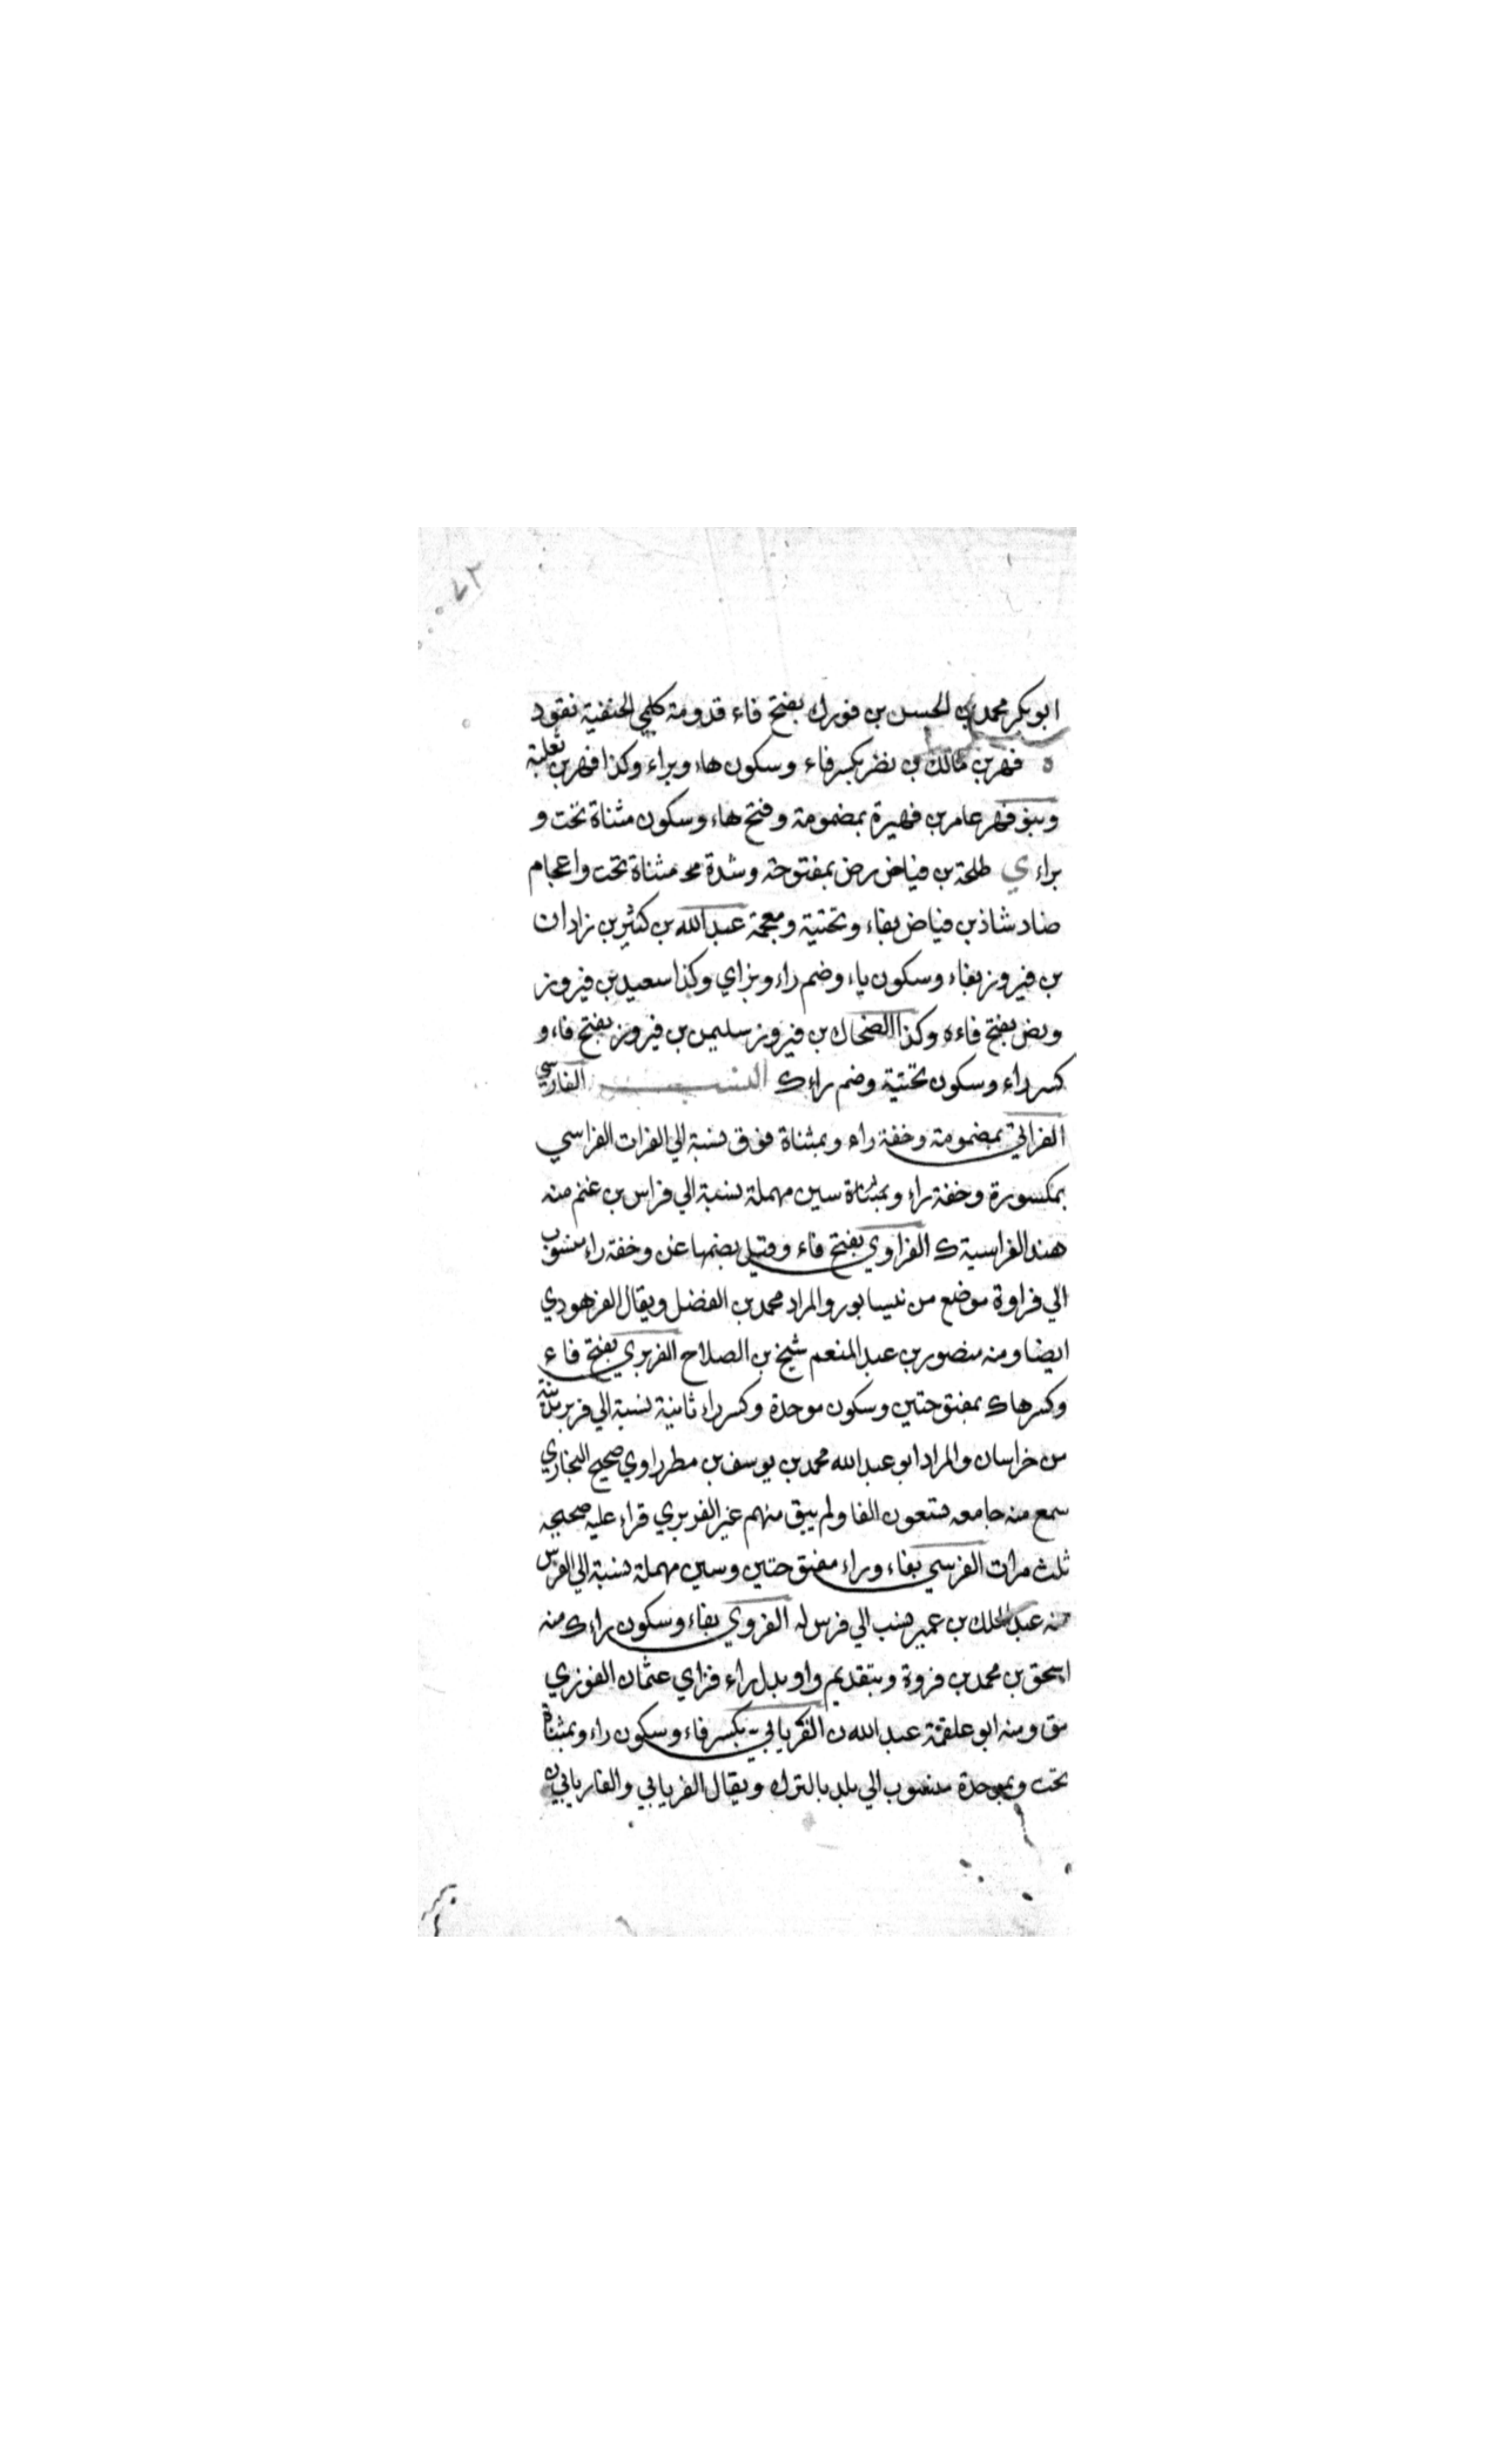 ٧٣
ابو بكر محمد بن الحسن بن فورك بفتح فاء قدومة كلمي الحنفية نقود
ه فهر بن مالك بن نضر بكسر فاء وسكون هاء وبراء وكذا فهر بن ثعلبة
وبنو فهر عامر بن فهيرة بمضمومة وفتح هاء وسكون مثناة تحت و
براء ي طلحة بن فياض رض بمفتوحة وشدة مثناة تحت واعجام
ضاد شاذ بن فياض بفاء وتحتية ومعجمة عبد الله بن كثير بن زادان
بن فيروز بفاء وسكون ياء وضم راء وبزاي وكذا سعيد بن فيروز
وبض بفتح فاءه وكذا الضحاك بن فيروز سليمن بن فيروز بفتح فاء و
كسر راء وسكون تحتية وضم راء ك النسب الفارسي
الفراتي بمضمومة وخفة راء وبمثناة فوق نسبة الي الفرات الفراسي
بمكسورة وخفة راء وبمثناة سين مهملة نسبة الي فراس بن غنم منه
هند الفراسية ك الفراوي بفتح فاء وقيل بضمها غن وخفة راء منسوب
الي فراوة موضع من نيسابور والمراد محمد بن الفضل ويقال الفرهودي
ايضا ومنه منصور بن عبد المنعم شيخ بن الصلاح الفربري بفتح فاء
وكسرها ك بمفتوحتين وسكون موحدة وكسر راء ثانية نسبة الي فربر مدينة
من خراسان والمراد ابو عبد الله محمد بن يوسف بن مطر راوي صحيح البخاري
سمع منه جامعه تسعون الفا ولم يبق منهم غير الفربري قراء عليه صحيحه
ثلث مرات الفرسي بفاء وراء مفتوحتين وسين مهملة نسبة الي الفرس
منه عبد الملك بن عمير نسب الي فرس له الفروي بفاء وسكون راء ك منه
اسحق بن محمد بن فروة وبتقديم واو بدل راء فزاي عثمان الفوزي
مق ومنه ابو علقمة عبد الله ن الفريابي بكسر فاء وسكون راء وبمثناة
تحت وبموحدة منسوب الي بلد بالترك ويقال الفريابي والفاريابي ن